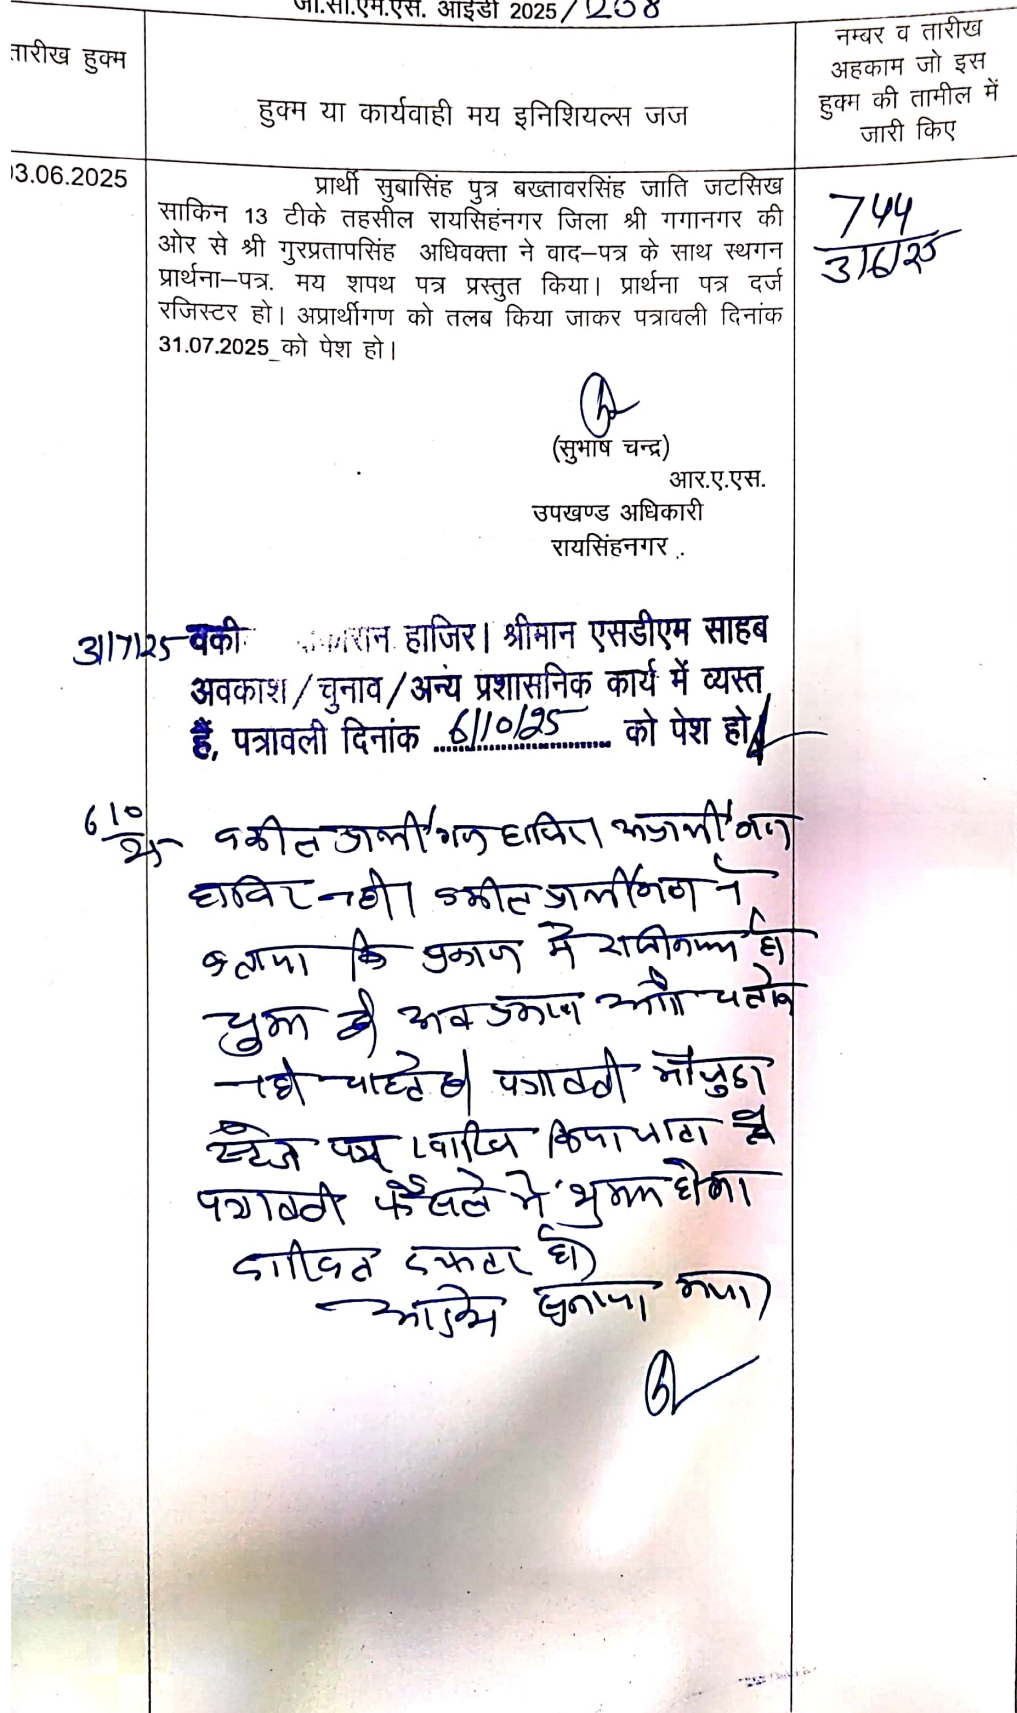 जी.सी.एम.एस. आईडी 2025/208
तारीख हुक्म
हुक्म या कार्यवाही मय इनिशियल्स जज
नम्बर व तारीख
अहकाम जो इस
हुक्म की तामील में
जारी किए
03.06.2025
प्रार्थी सुबासिंह पुत्र बख्तावरसिंह जाति जटसिख
साकिन 13 टीके तहसील रायसिहंनगर जिला श्री गगानगर की
ओर से श्री गुरप्रतापसिंह अधिवक्ता ने वाद–पत्र के साथ स्थगन
प्रार्थना–पत्र. मय शपथ पत्र प्रस्तुत किया। प्रार्थना पत्र दर्ज
रजिस्टर हो। अप्रार्थीगण को तलब किया जाकर पत्रावली दिनांक
31.07.2025 को पेश हो।
744
3/6/25
(सुभाष चन्द्र)
आर.ए.एस.
उपखण्ड अधिकारी
रायसिंहनगर
31/7/25 वकी रान हाजिर। श्रीमान एसडीएम साहब
अवकाश/चुनाव/अन्य प्रशासनिक कार्य में व्यस्त
हैं, पत्रावली दिनांक 6/10/25 को पेश हो
6/10/25 वकील प्रार्थीगण हाजिर। अप्रार्थीगण
हाजिर नही। वकील प्रार्थीगण ने
बताया कि प्रकरण में राजीनामा हो
चुका है अब प्रकरण आगे चलाना
नही चाहते है। पत्रावली मौजुदा
स्टेज पर खारिज किया जाता है
पत्रावली फैसले में शुमार होकर
दाखिल दफ्तर हो।
आदेश सुनाया गया।